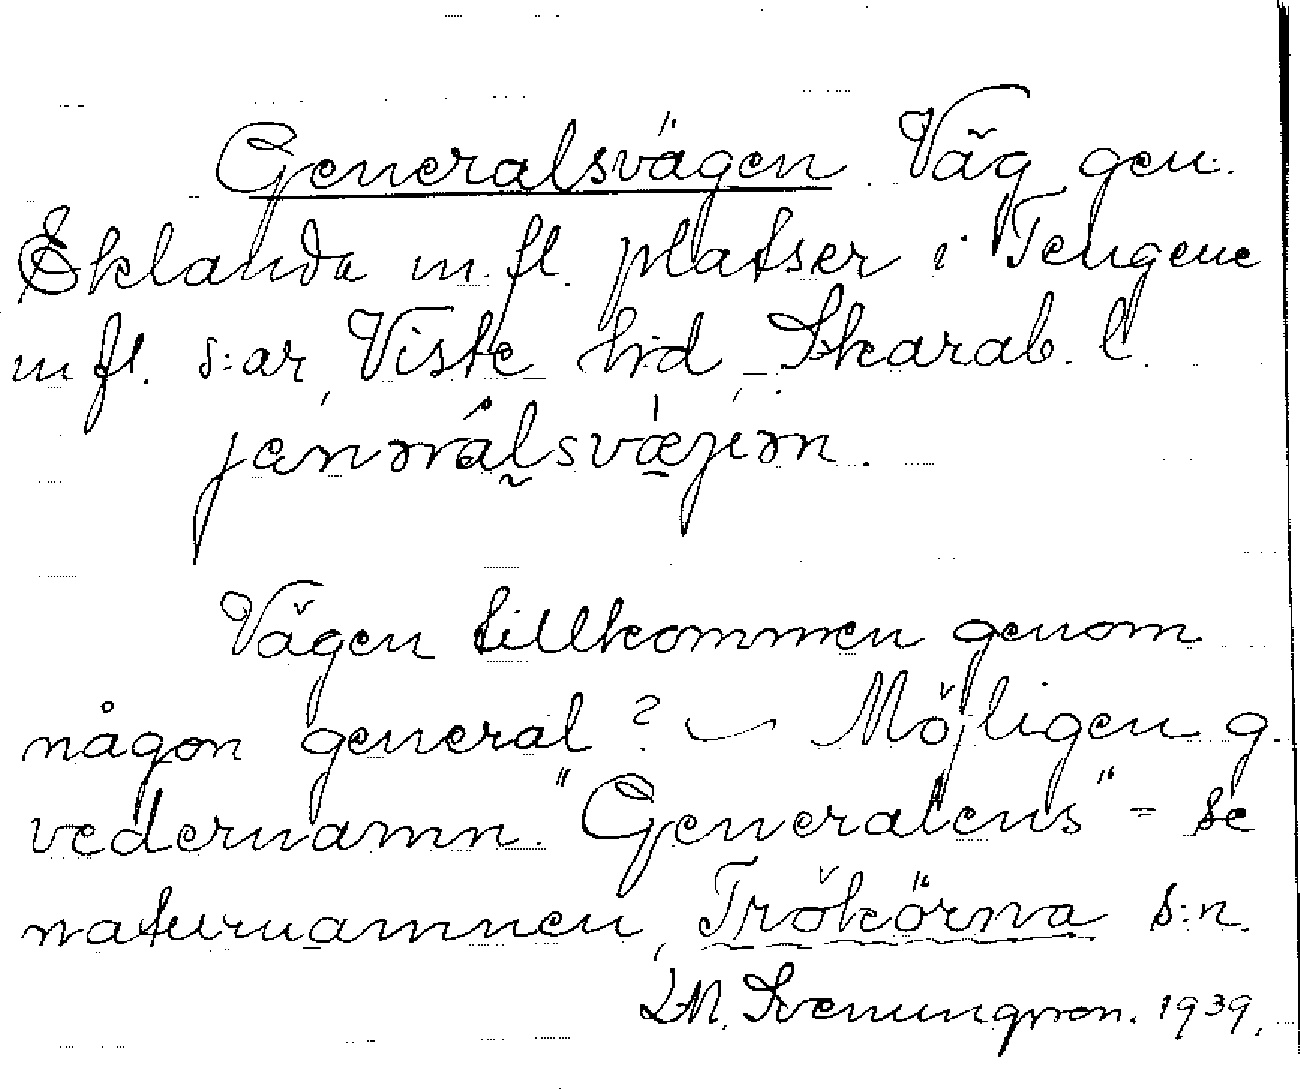 Generalsvägen. Väg gen.
Eklanda m.fl. platser i Tengene
m fl. s:ar, Viste hd, Skarab. l.
Vägen tillkommen genom
någon general? – Möjligen g.
vedernamn. "Generalens" - se
naturnamnen, Trökörna s:n.
L.M. Svenungsson. 1939.